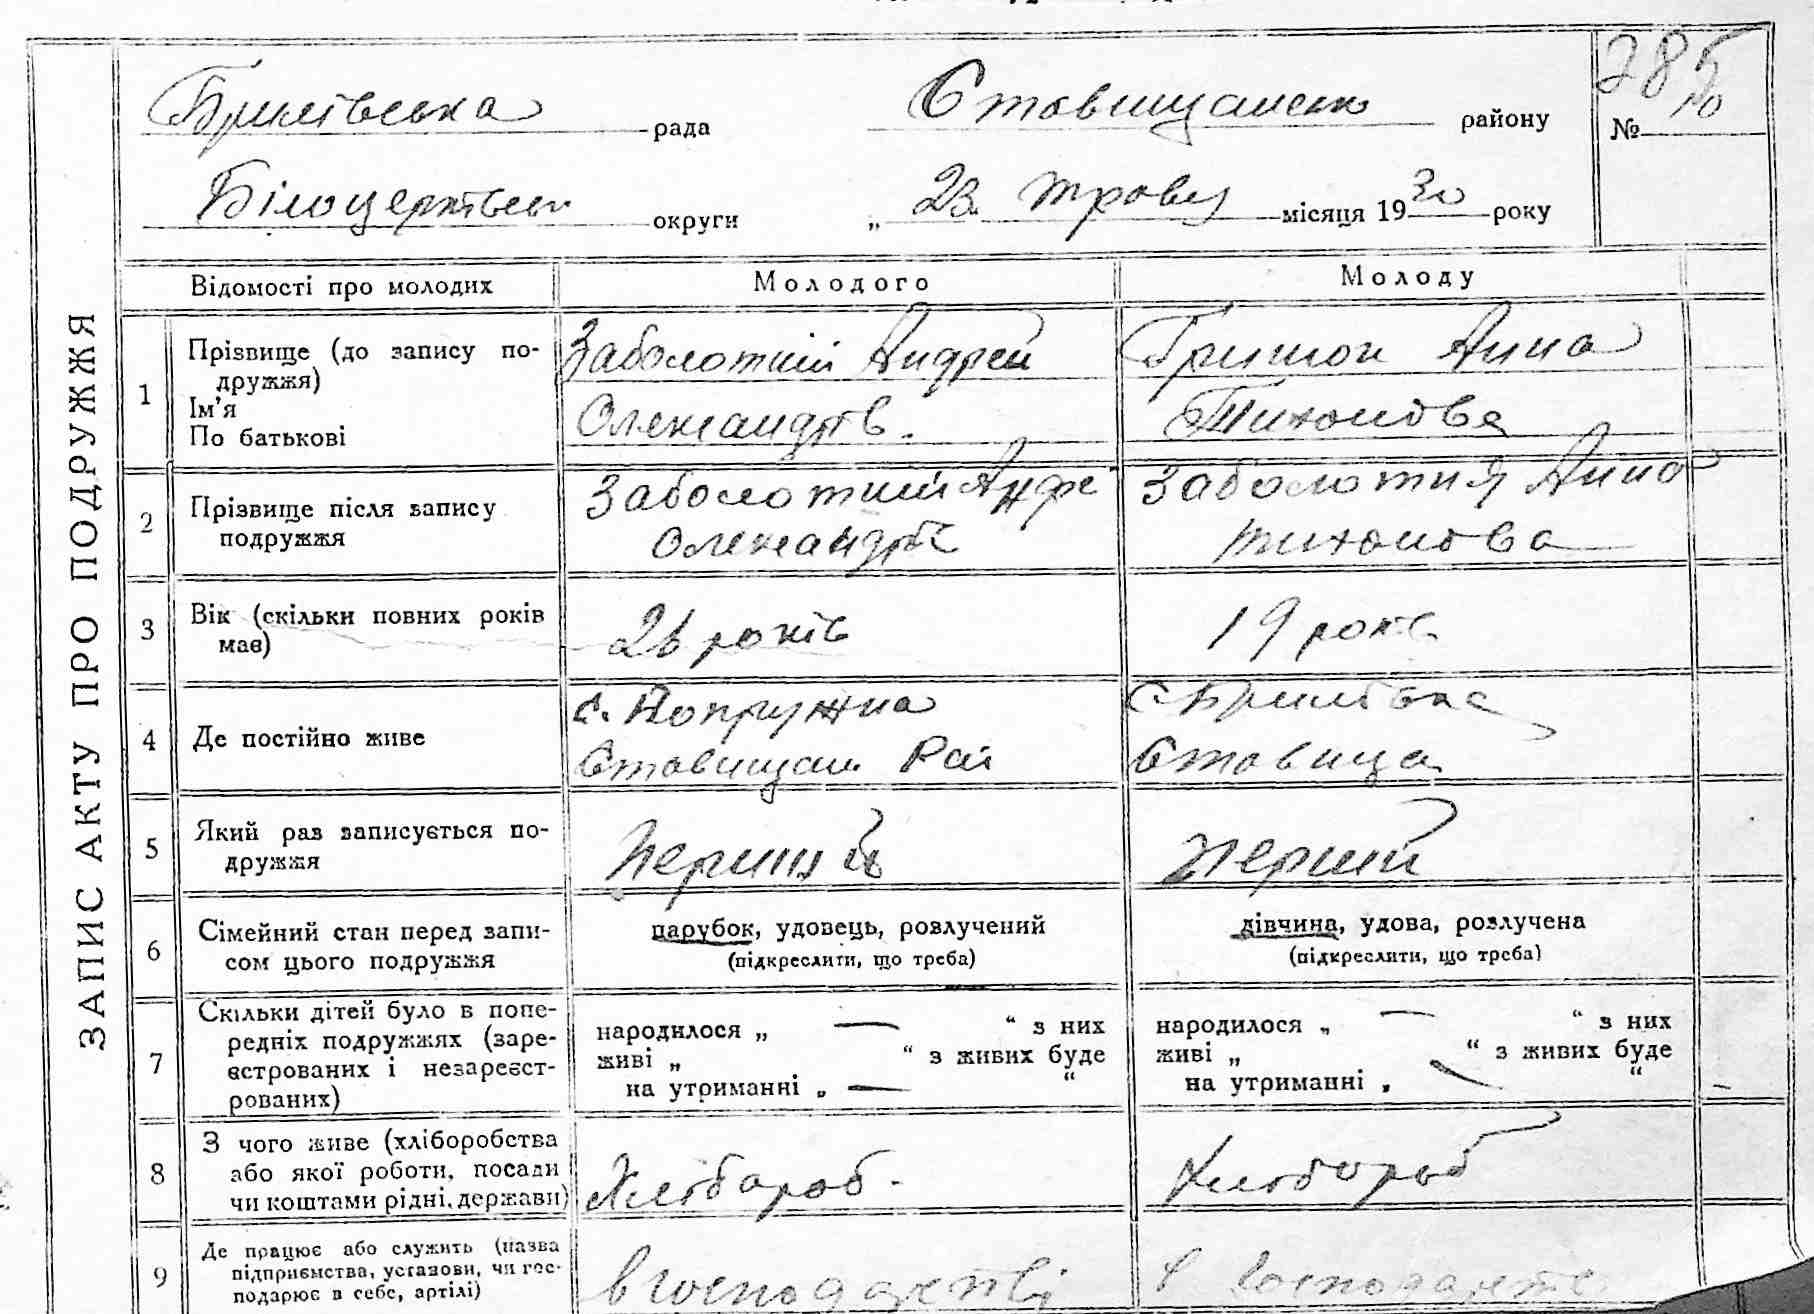 Брилівська рада Ставищанськ району
285
№ 10
Білоцерківськ округи „ 23. травня місяця 1930 року
ЗАПИС АКТУ ПРО ПОДРУЖЖЯ
Відомості про молодих Молодого Молоду
1 Прізвище (до запису по-
дружжя)
Ім'я
По батькові
Заболотній Андрей
Олександрів.
Гришон Анна
Тихонова
2 Прізвище після запису
подружжя
Заболотний Андре
Олександрів
Заболотня Анна
Тихонова
3 Вік (скільки повних років
має)
26 років
19 років
4 Де постійно живе
с. Попружна
Ставищан. Рай
с. Брилівка
Ставища
5 Який раз записується по-
дружжя
Перший
перший
6 Сімейний стан перед запи-
сом цього подружжя
парубок, удовець, розлучений
(підкреслити, що треба)
дівчина, удова, розлучена
(підкреслити, що треба)
7 Скільки дітей було в попе-
редніх подружжях (заре-
єстрованих і незареєст-
рованих)
народилося „ — “ з них
живі „ “ з живих буде
на утриманні „ — “
народилося „ — “ з них
живі „ “ з живих буде
на утриманні „ — “
8 З чого живе (хліборобства
або якої роботи, посади
чи коштами рідні, держави)
Хлібороб.
Хлібороб
9 Де працює або служить (назва
підприємства, установи, чи гос-
подарює в себе, артілі)
в господарстві
в господарстві